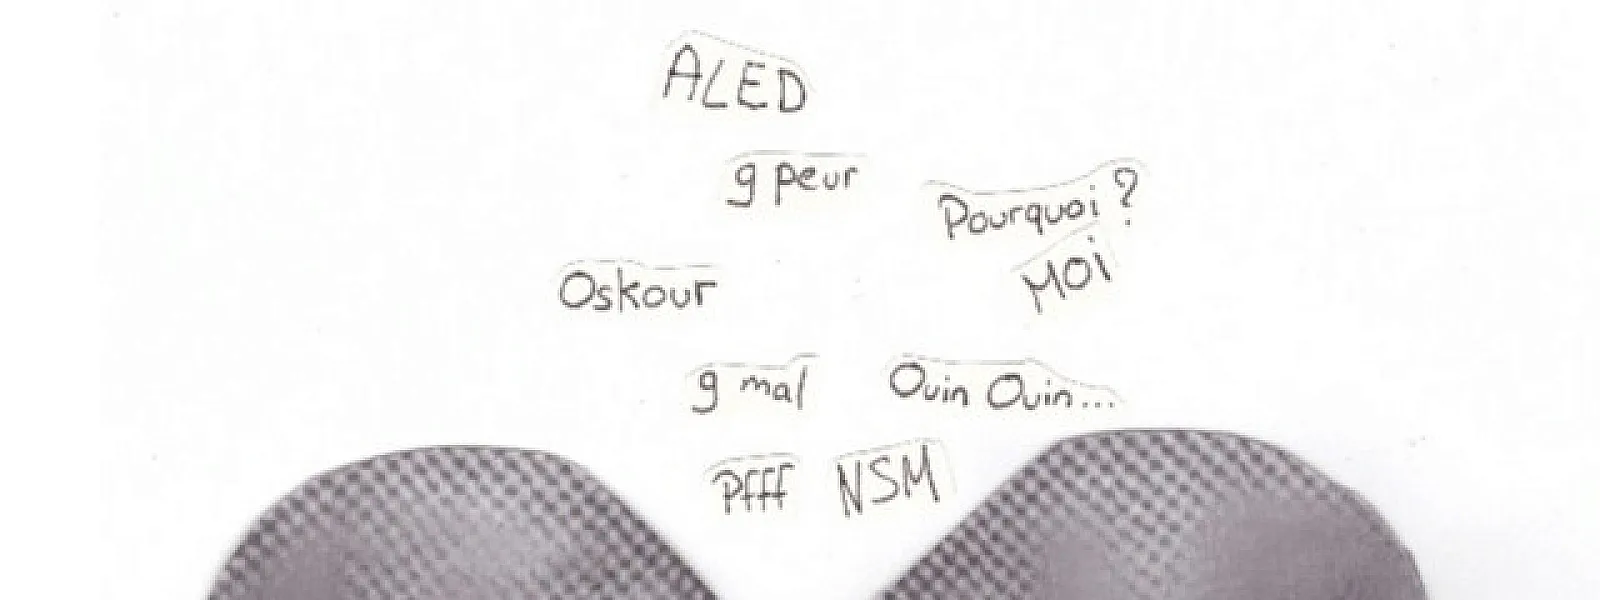 ALED
g peur
Pourquoi ?
MOi
Oskour
g mal
Ouin Ouin...
Pfff
NSM